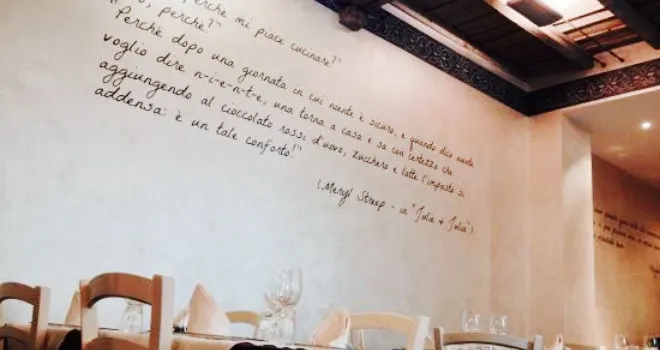 perché mi piace cucinare?"
perché?"
"Perché dopo una giornata in cui niente è sicuro, e quando dico niente
voglio dire n-i-e-n-t-e, una torna a casa e sa con certezza che
aggiungendo al cioccolato rossi d'uovo, zucchero e latte l'impasto si
addensa: è un tale conforto!"
(Meryl Streep - in "Julie & Julia")